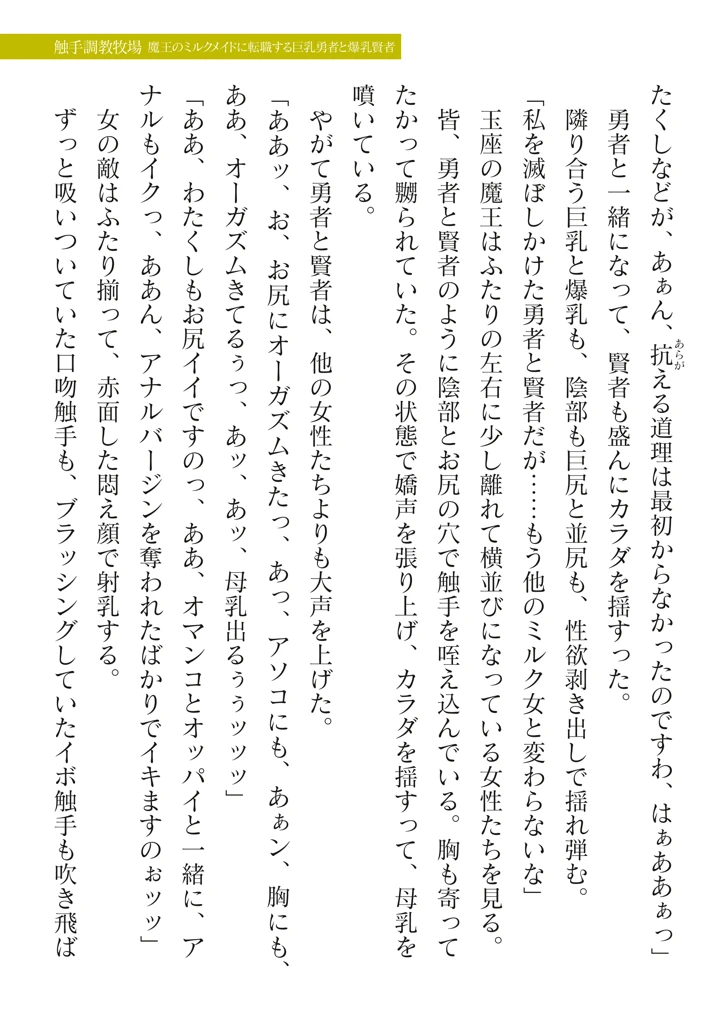 触手調教牧場 魔王のミルクメイドに転職する巨乳勇者と爆乳賢者
たくしなどが、あぁん、抗える道理は最初からなかったのですわ、はぁああぁっ」
あらが
勇者と一緒になって、賢者も盛んにカラダを揺すった。
隣り合う巨乳と爆乳も、陰部も巨尻と並尻も、性欲剥き出しで揺れ弾む。
「私を滅ぼしかけた勇者と賢者だが……もう他のミルク女と変わらないな」
玉座の魔王はふたりの左右に少し離れて横並びになっている女性たちを見る。
皆、勇者と賢者のように陰部とお尻の穴で触手を咥え込んでいる。胸も寄って
たかって嬲られていた。その状態で嬌声を張り上げ、カラダを揺すって、母乳を
噴いている。
やがて勇者と賢者は、他の女性たちよりも大声を上げた。
「ああッ、お、お尻にオーガズムきたっ、あっ、アソコにも、あぁン、胸にも、
ああ、オーガズムきてるぅっ、あッ、あッ、母乳出るぅぅッッッ」
「ああ、わたくしもお尻イイですのっ、ああ、オマンコとオッパイと一緒に、ア
ナルもイクっ、ああん、アナルバージンを奪われたばかりでイキますのぉッッ」
女の敵はふたり揃って、赤面した悶え顔で射乳する。
ずっと吸いついていた口吻触手も、ブラッシングしていたイボ触手も吹き飛ば